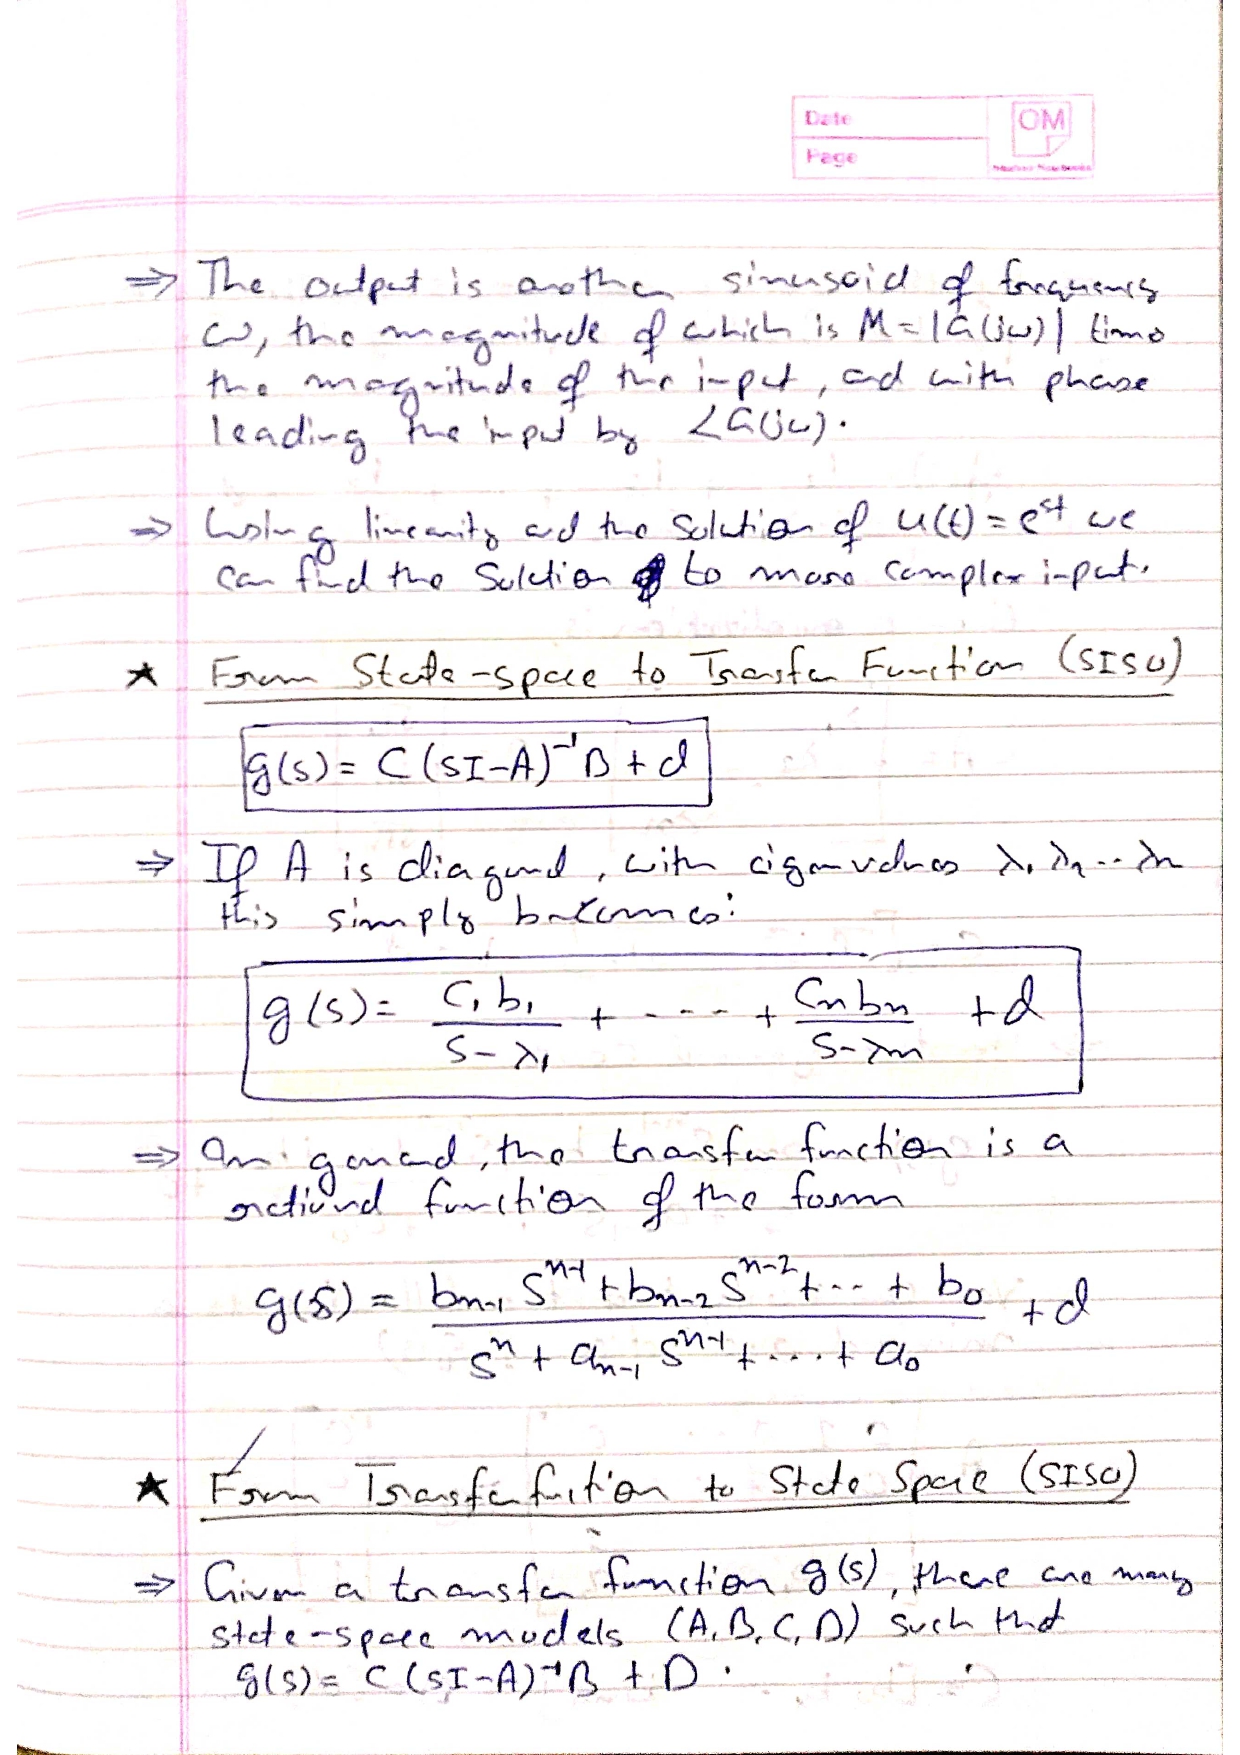 Date
OM
Page
⇒ The output is another sinusoid of frequency
ω, the magnitude of which is M = |G(jω)| time
the magnitude of the input, and with phase
leading the input by ∠G(jω).
⇒ Using linearity and the solution of u(t) = e^st we
can find the solution to more complex input.
★ From State-space to Transfer Function (SISO)
g(s) = C (sI-A)^-1 B + d
⇒ If A is diagonal, with eigenvalues λ1 λ2 .. λn
this simply becomes:
g(s) = c1 b1 / (s-λ1) + ---- + cn bn / (s-λn) + d
⇒ In general, the transfer function is a
rational function of the form
g(s) = (bn-1 s^n-1 + bn-2 s^n-2 + ... + b0) / (s^n + an-1 s^n-1 + .... + a0) + d
★ From Transfer function to State Space (SISO)
⇒ Given a transfer function g(s), there are many
state-space models (A, B, C, D) such that
g(s) = C (sI-A)^-1 B + D.